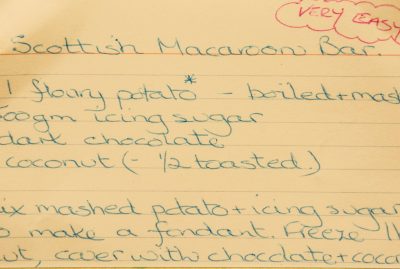 VERY EASY
Scottish Macaroon Bar.
1 floury potato* - boiled+mash
500gm icing sugar
dark chocolate
coconut (~ 1/2 toasted)
ix mashed potato + icing sugar
o make a fondant. Freeze 1
ut, cover with chocolate + coco